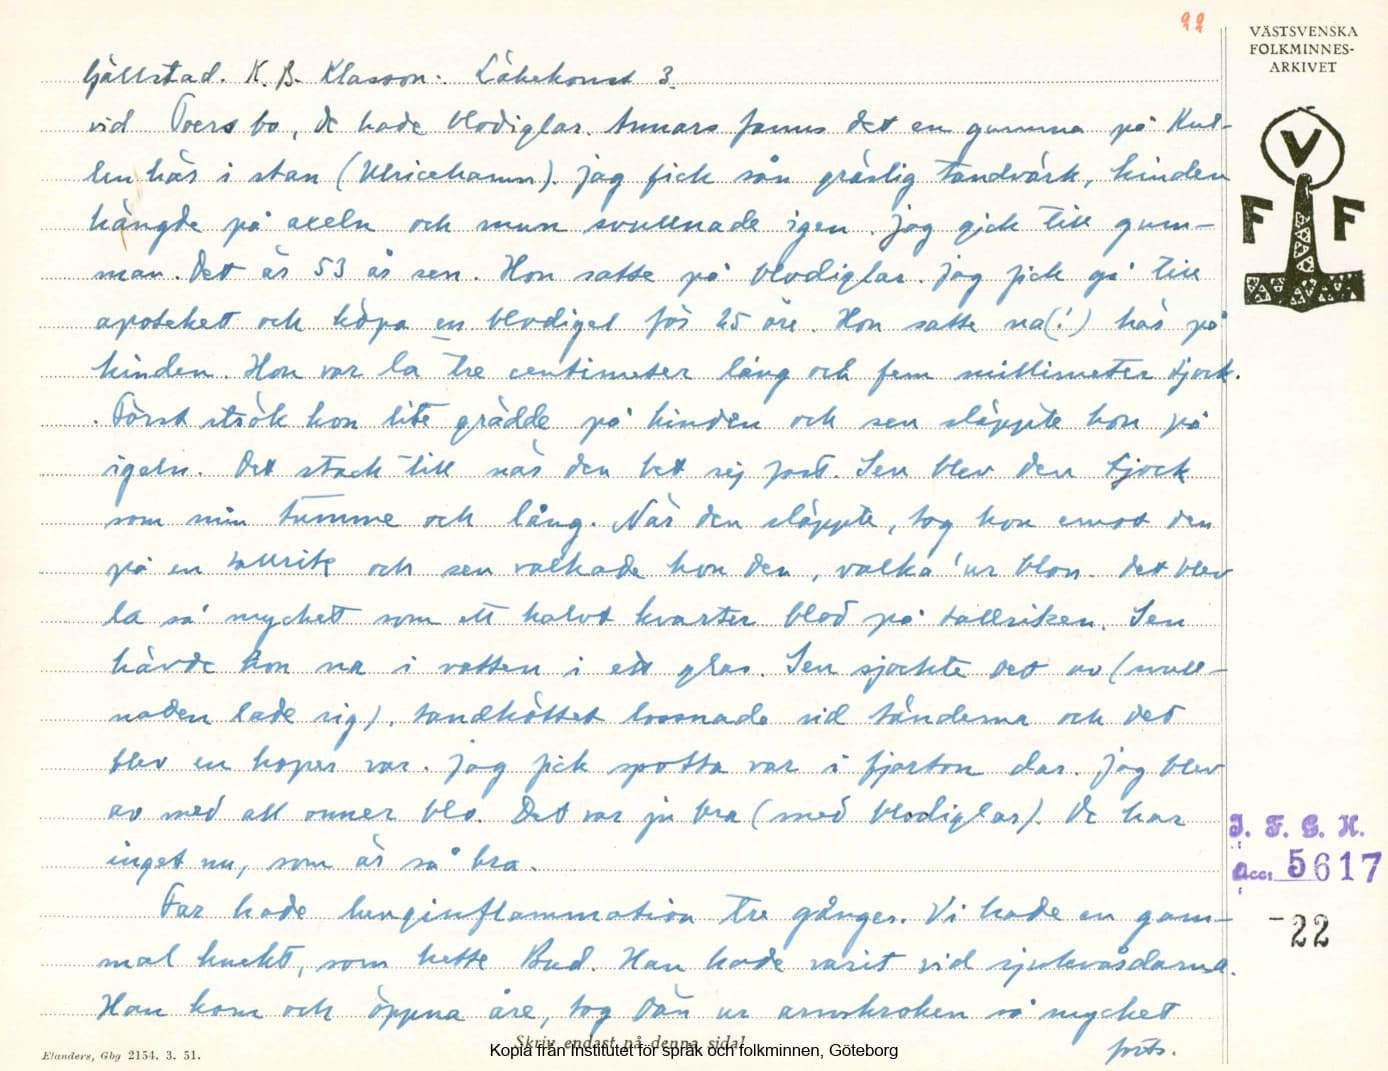 22
VÄSTSVENSKA
FOLKMINNES-
ARKIVET
Gällstad. K. B. Klasson. Läkekonst 3.
vid Toersbo, de hade blodiglar. Annars fanns det en gumma på Kul-
len här i stan (Ulricehamn). Jag fick sån gräslig tandvärk, kinden
hängde på axeln och mun svullnade igen. Jag gick till gum-
man. Det är 53 år sen. Hon satte på blodiglar. Jag fick gå till
apoteket och köpa en blodigel för 25 öre. Hon satte na(!) här på
kinden. Hon var la tre centimeter lång och fem millimeter tjock.
Först strök hon lite grädde på kinden och sen släppte hon på
igeln. Det stack till när den bet sej fast. Sen blev den tjock
som min tumme och lång. När den släppte, tog hon emot den
på en tallrik och sen valkade hon den, valka' ur blon. Det blev
la så mycket som ett halvt kvarter blod på tallriken. Sen
hävde hon na i vatten i ett glas. Sen sjackte det av (svull-
naden lade sig). Tandköttet lossnade vid tänderna och det
blev en hoper var. Jag fick spotta var i fjorton dar. Jag blev
av med all onner blo. Det var ju bra (med blodiglar). De har
inget nu, som är så bra.
Far hade lunginflammation tre gånger. Vi hade en gam-
mal knekt, som hette Bud. Han hade varit vid sjukvårdarna.
Han kom och öppna åre, tog dän ur armkroken så mycket
forts.
V
F F
I. F. G. H.
Acc: 5617
-22
Elanders, Gbg 2154. 3. 51.
Skriv endast på denna sida!
Kopia från Institutet för språk och folkminnen, Göteborg